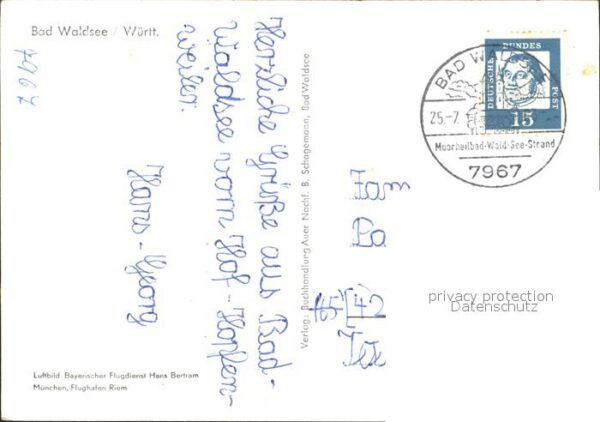 Bad Waldsee / Württ.
7967
Herzliche Grüße aus Bad-
Waldsee vom Hof-Hopfen-
weiler.
Hans-Georg
Luftbild Bayerischer Flugdienst Hans Bertram
München, Flughafen Riem
Verlag: Buchhandlung Auer Nachf. B. Schagemann, Bad Waldsee
DEUTSCHE
BUNDES
POST
15
BAD WALDSEE
25.-7.
Moorheilbad-Wald-See-Strand
7967
Fam
privacy protection
Datenschutz